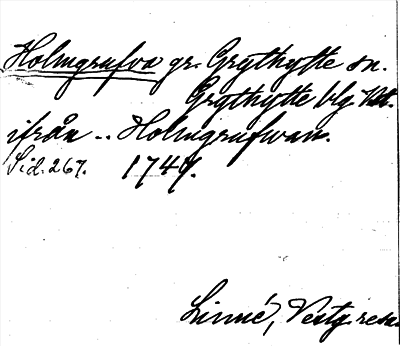 Holmgrufva gr. Grythytte sn.
Grythytte blg Vstm.
ifrån .. Holmgrufwan.
Sid. 267. 1747.
Linné, Vestg. resa